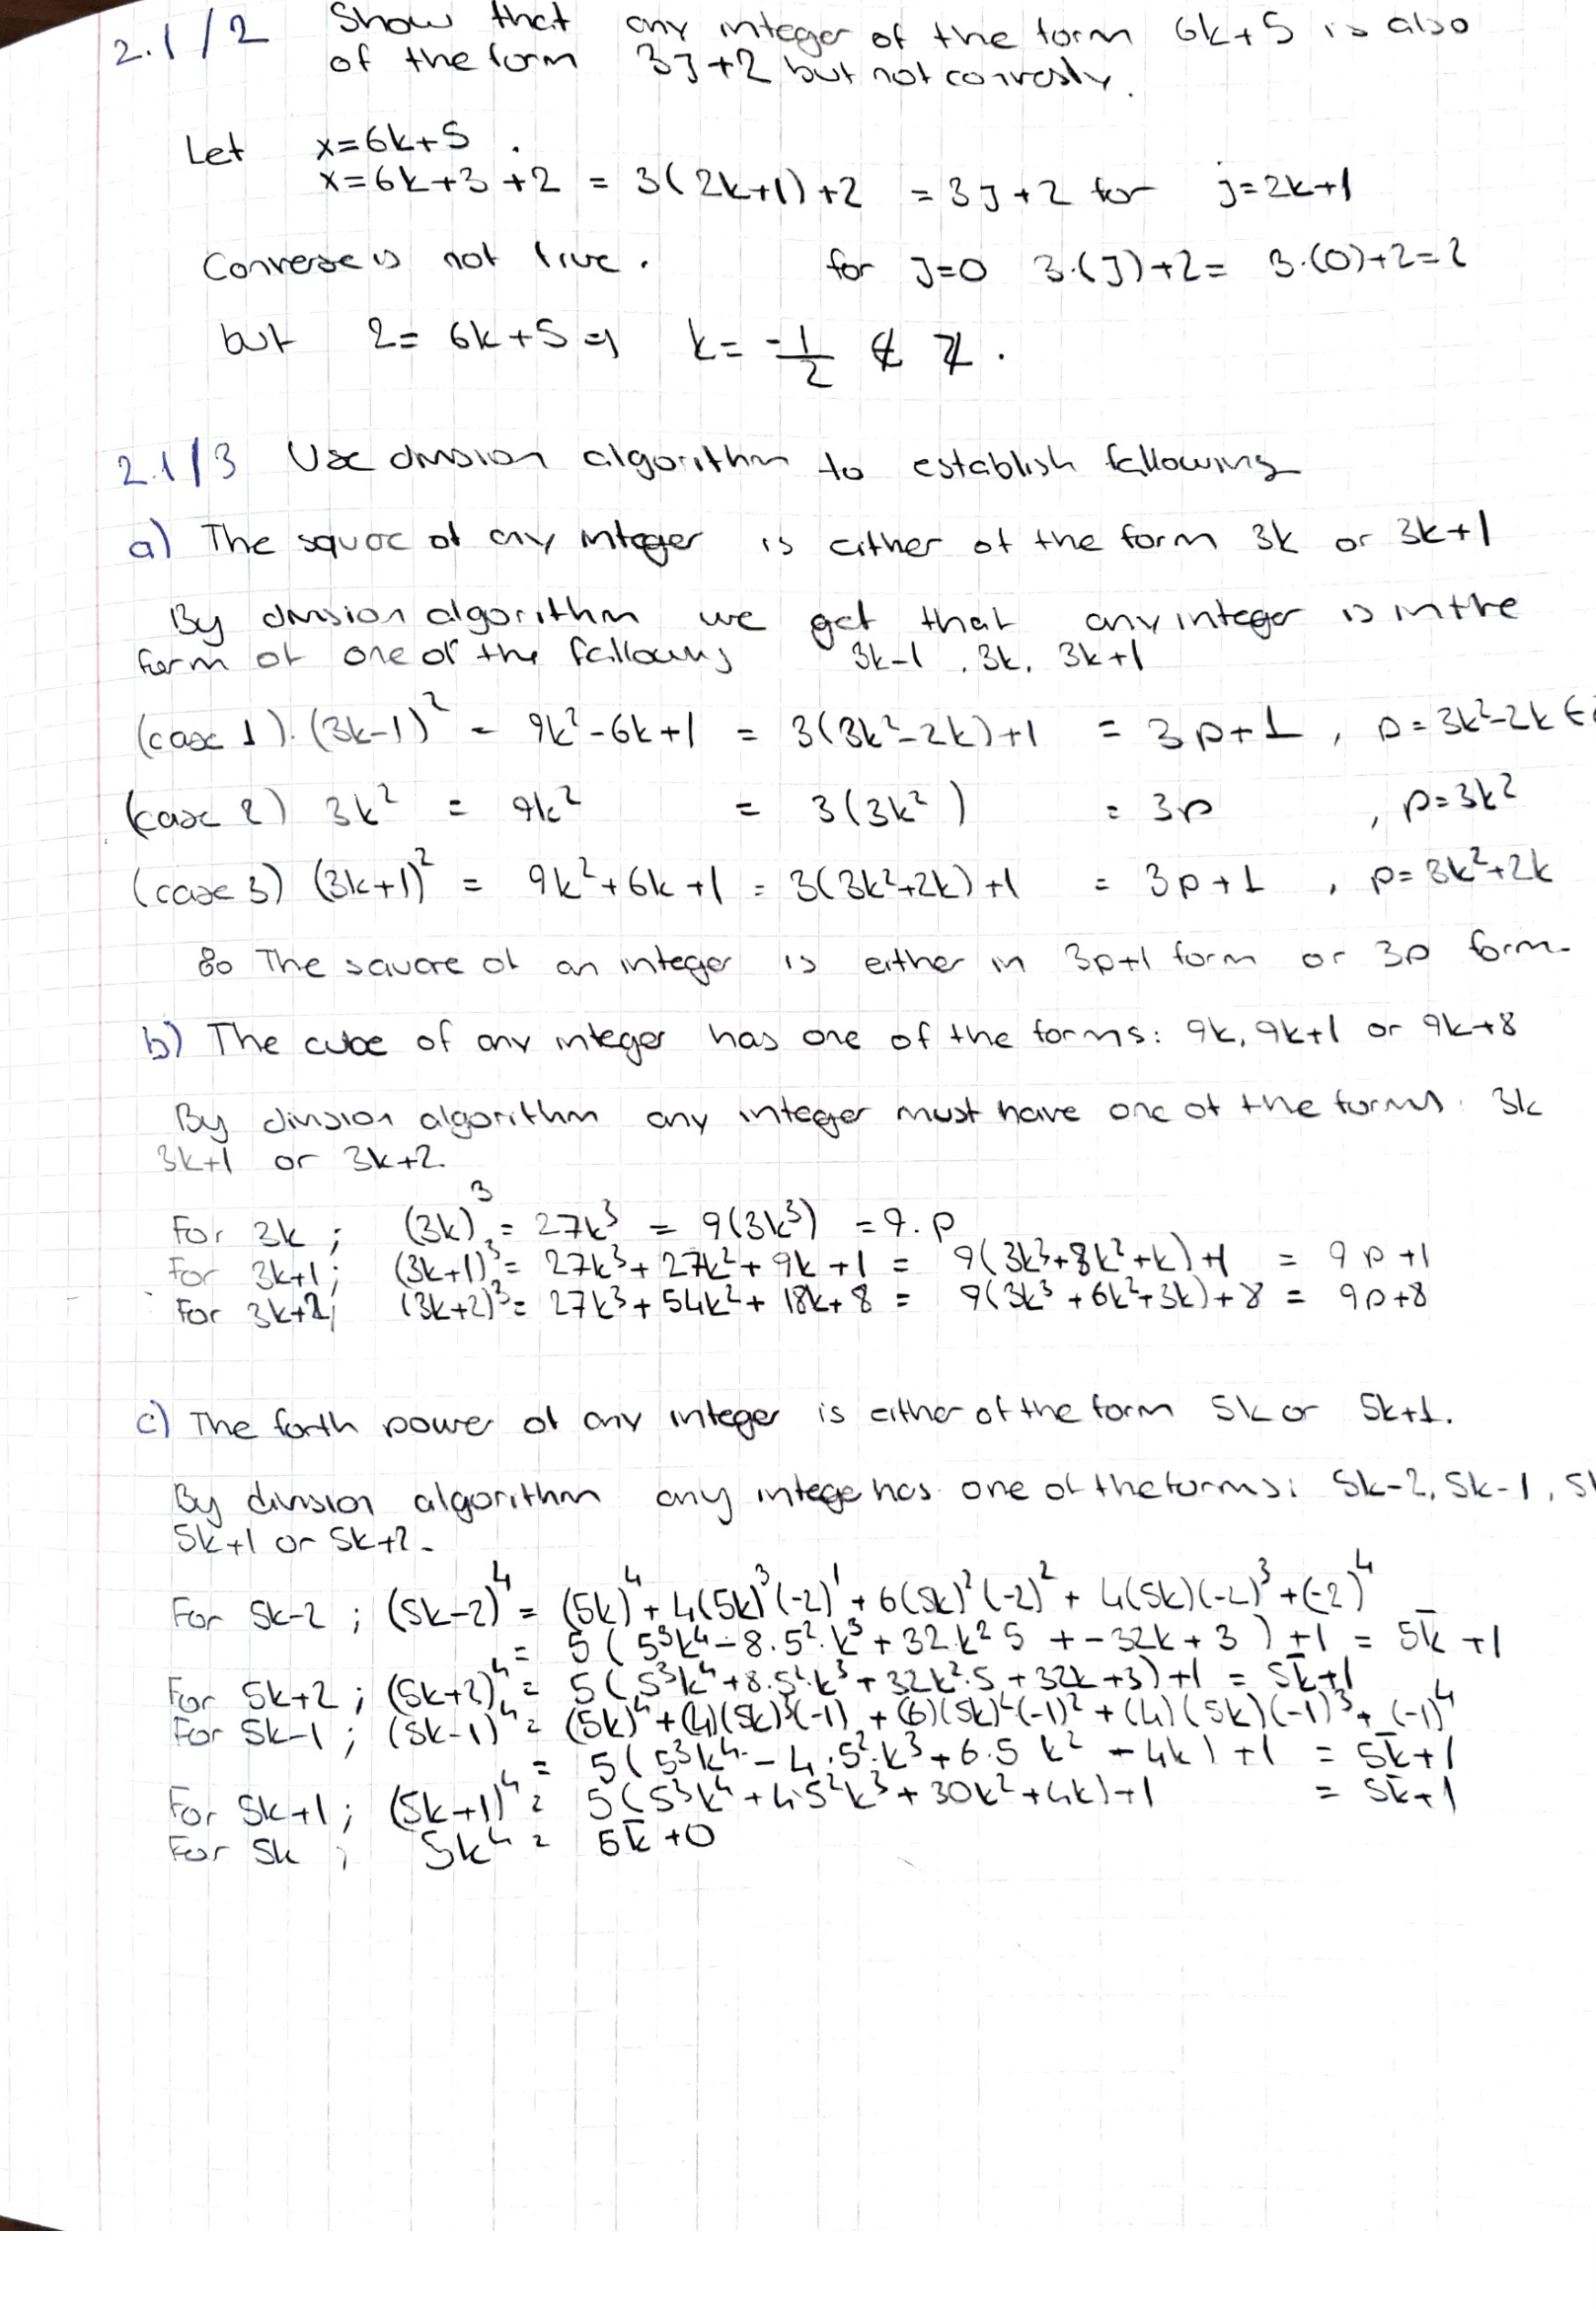 2.1/2 Show that any integer of the form 6k+5 is also
of the form 3J+2 but not conversly.
Let x=6k+5.
x=6k+3+2 = 3(2k+1)+2 = 3J+2 for j=2k+1
Converse is not true. for J=0 3.(J)+2= 3.(0)+2=2
but 2= 6k+5 ⇒ k= -1/2 ∉ ℤ.
2.1/3 Use division algorithm to establish following
a) The square of any integer is either of the form 3k or 3k+1
By division algorithm we get that any integer is in the
form of one of the following 3k-1, 3k, 3k+1
(case 1). (3k-1)² = 9k²-6k+1 = 3(3k²-2k)+1 = 3p+1, p=3k²-2k ∈
(case 2) 3k² = 9k² = 3(3k²) = 3p, p=3k²
(case 3) (3k+1)² = 9k²+6k+1 = 3(3k²+2k)+1 = 3p+1, p=3k²+2k
So The square of an integer is either in 3p+1 form or 3p form.
b) The cube of any integer has one of the forms: 9k, 9k+1 or 9k+8
By division algorithm any integer must have one of the forms: 3k
3k+1 or 3k+2.
For 3k; (3k)³ = 27k³ = 9(3k³) = 9.p
For 3k+1; (3k+1)³ = 27k³+27k²+9k+1 = 9(3k³+3k²+k)+1 = 9p+1
For 3k+2; (3k+2)³ = 27k³+54k²+18k+8 = 9(3k³+6k²+3k)+8 = 9p+8
c) The forth power of any integer is either of the form 5k or 5k+1.
By division algorithm any intege has one of the forms: 5k-2, 5k-1, 5
5k+1 or 5k+2.
For 5k-2; (5k-2)⁴ = (5k)⁴+4(5k)³(-2)¹+6(5k)²(-2)²+4(5k)(-2)³+(-2)⁴
= 5(5³k⁴-8.5².k³+32.k²5+-32k+3)+1 = 5k̄+1
For 5k+2; (5k+2)⁴ = 5(5³k⁴+8.5².k³+32k².5+32k+3)+1 = 5k̄+1
For 5k-1; (5k-1)⁴ = (5k)⁴+(4)(5k)³(-1)+(6)(5k)²(-1)²+(4)(5k)(-1)³+(-1)⁴
= 5(5³k⁴-4.5².k³+6.5k²-4k)+1 = 5k̄+1
For 5k+1; (5k+1)⁴ = 5(5³k⁴+4.5²k³+30k²+4k)+1 = 5k̄+1
For 5k; 5k⁴ = 5k̄+0